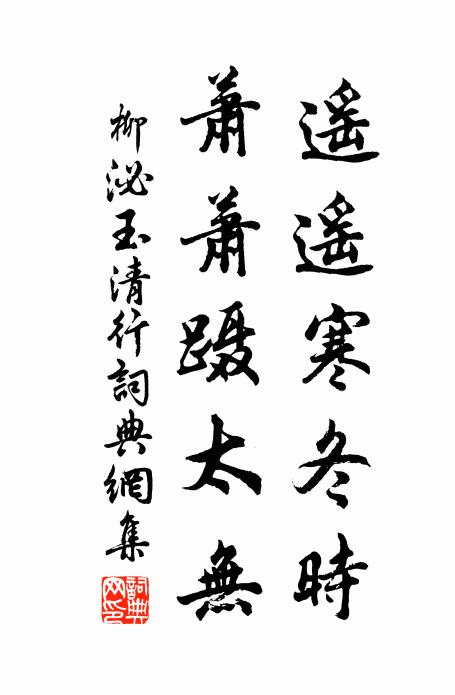 遥遥寒冬時
蕭蕭蹑太無
柳泌玉清行詞典網集
詞典網印